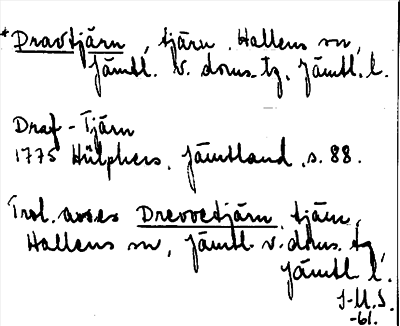 *Dravtjärn, tjärn, Hallens sn,
Jämtl. v. doms. tg, Jämtl. l.
Draf-Tjärn
1775 Hülphers, Jämtland, s. 88.
Trol. avses Drevvetjärn, tjärn,
Hallens sn, Jämtl. v. doms. tg,
Jämtl. l.
J-M.S.
-61.